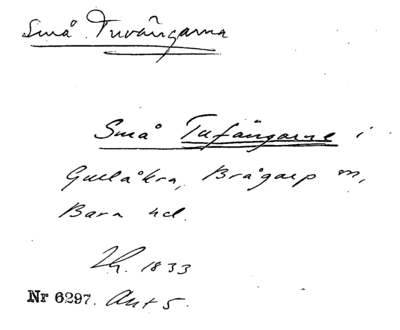 Små Tuvängarna
Små Tufängarne i
Gullåkra, Brågarp m,
Bara hd.
1833
Nr 6297. Akt 5.